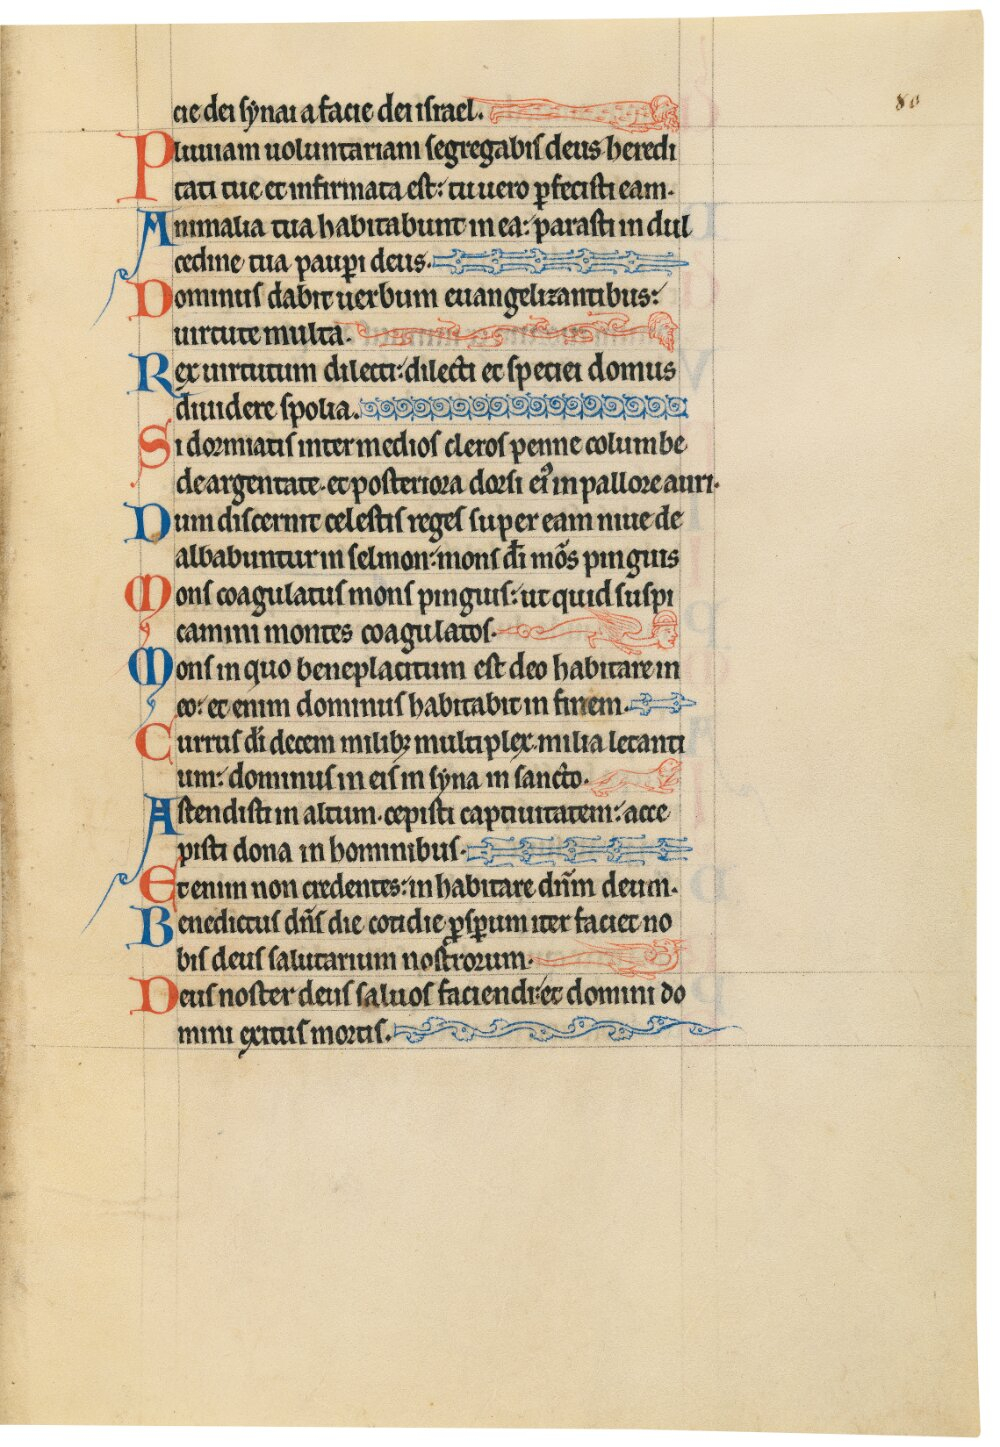 80
cie dei synai a facie dei israel.
Pluuiam uoluntariam segregabis deus heredi
tati tue et infirmata est: tu uero ꝑfecisti eam.
Animalia tua habitabunt in ea: parasti in dul
cedine tua pauꝑi deus.
Dominus dabit uerbum euangelizantibus:
uirtute multa.
Rex uirtutum dilecti: dilecti et speciei domus
diuidere spolia.
Si dormiatis inter medios cleros penne columbe
de argentate. et posteriora dorsi ei᷒ in pallore auri.
Dum discernit celestis reges super eam niue de
albabuntur in selmon: mons dī mōs pinguis
Mons coagulatus mons pinguis: ut quid suspi
camini montes coagulatos.
Mons in quo beneplacitum est deo habitare in
eo: et enim dominus habitabit in finem.
Currus dī decem milibꝫ multiplex. milia letanti
um: dominus in eis in syna in sancto.
Ascendisti in altum. cepisti captiuitatem: acce
pisti dona in hominibus.
Et enim non credentes: inhabitare dn̄m deum.
Benedictus dn̄s die cotidie ꝓsꝑum iter faciet no
bis deus salutarium nostrorum.
Deus noster deus saluos faciendi: et domini do
mini exitus mortis.